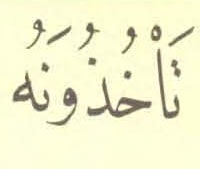 تَأْخُذُونَهُ